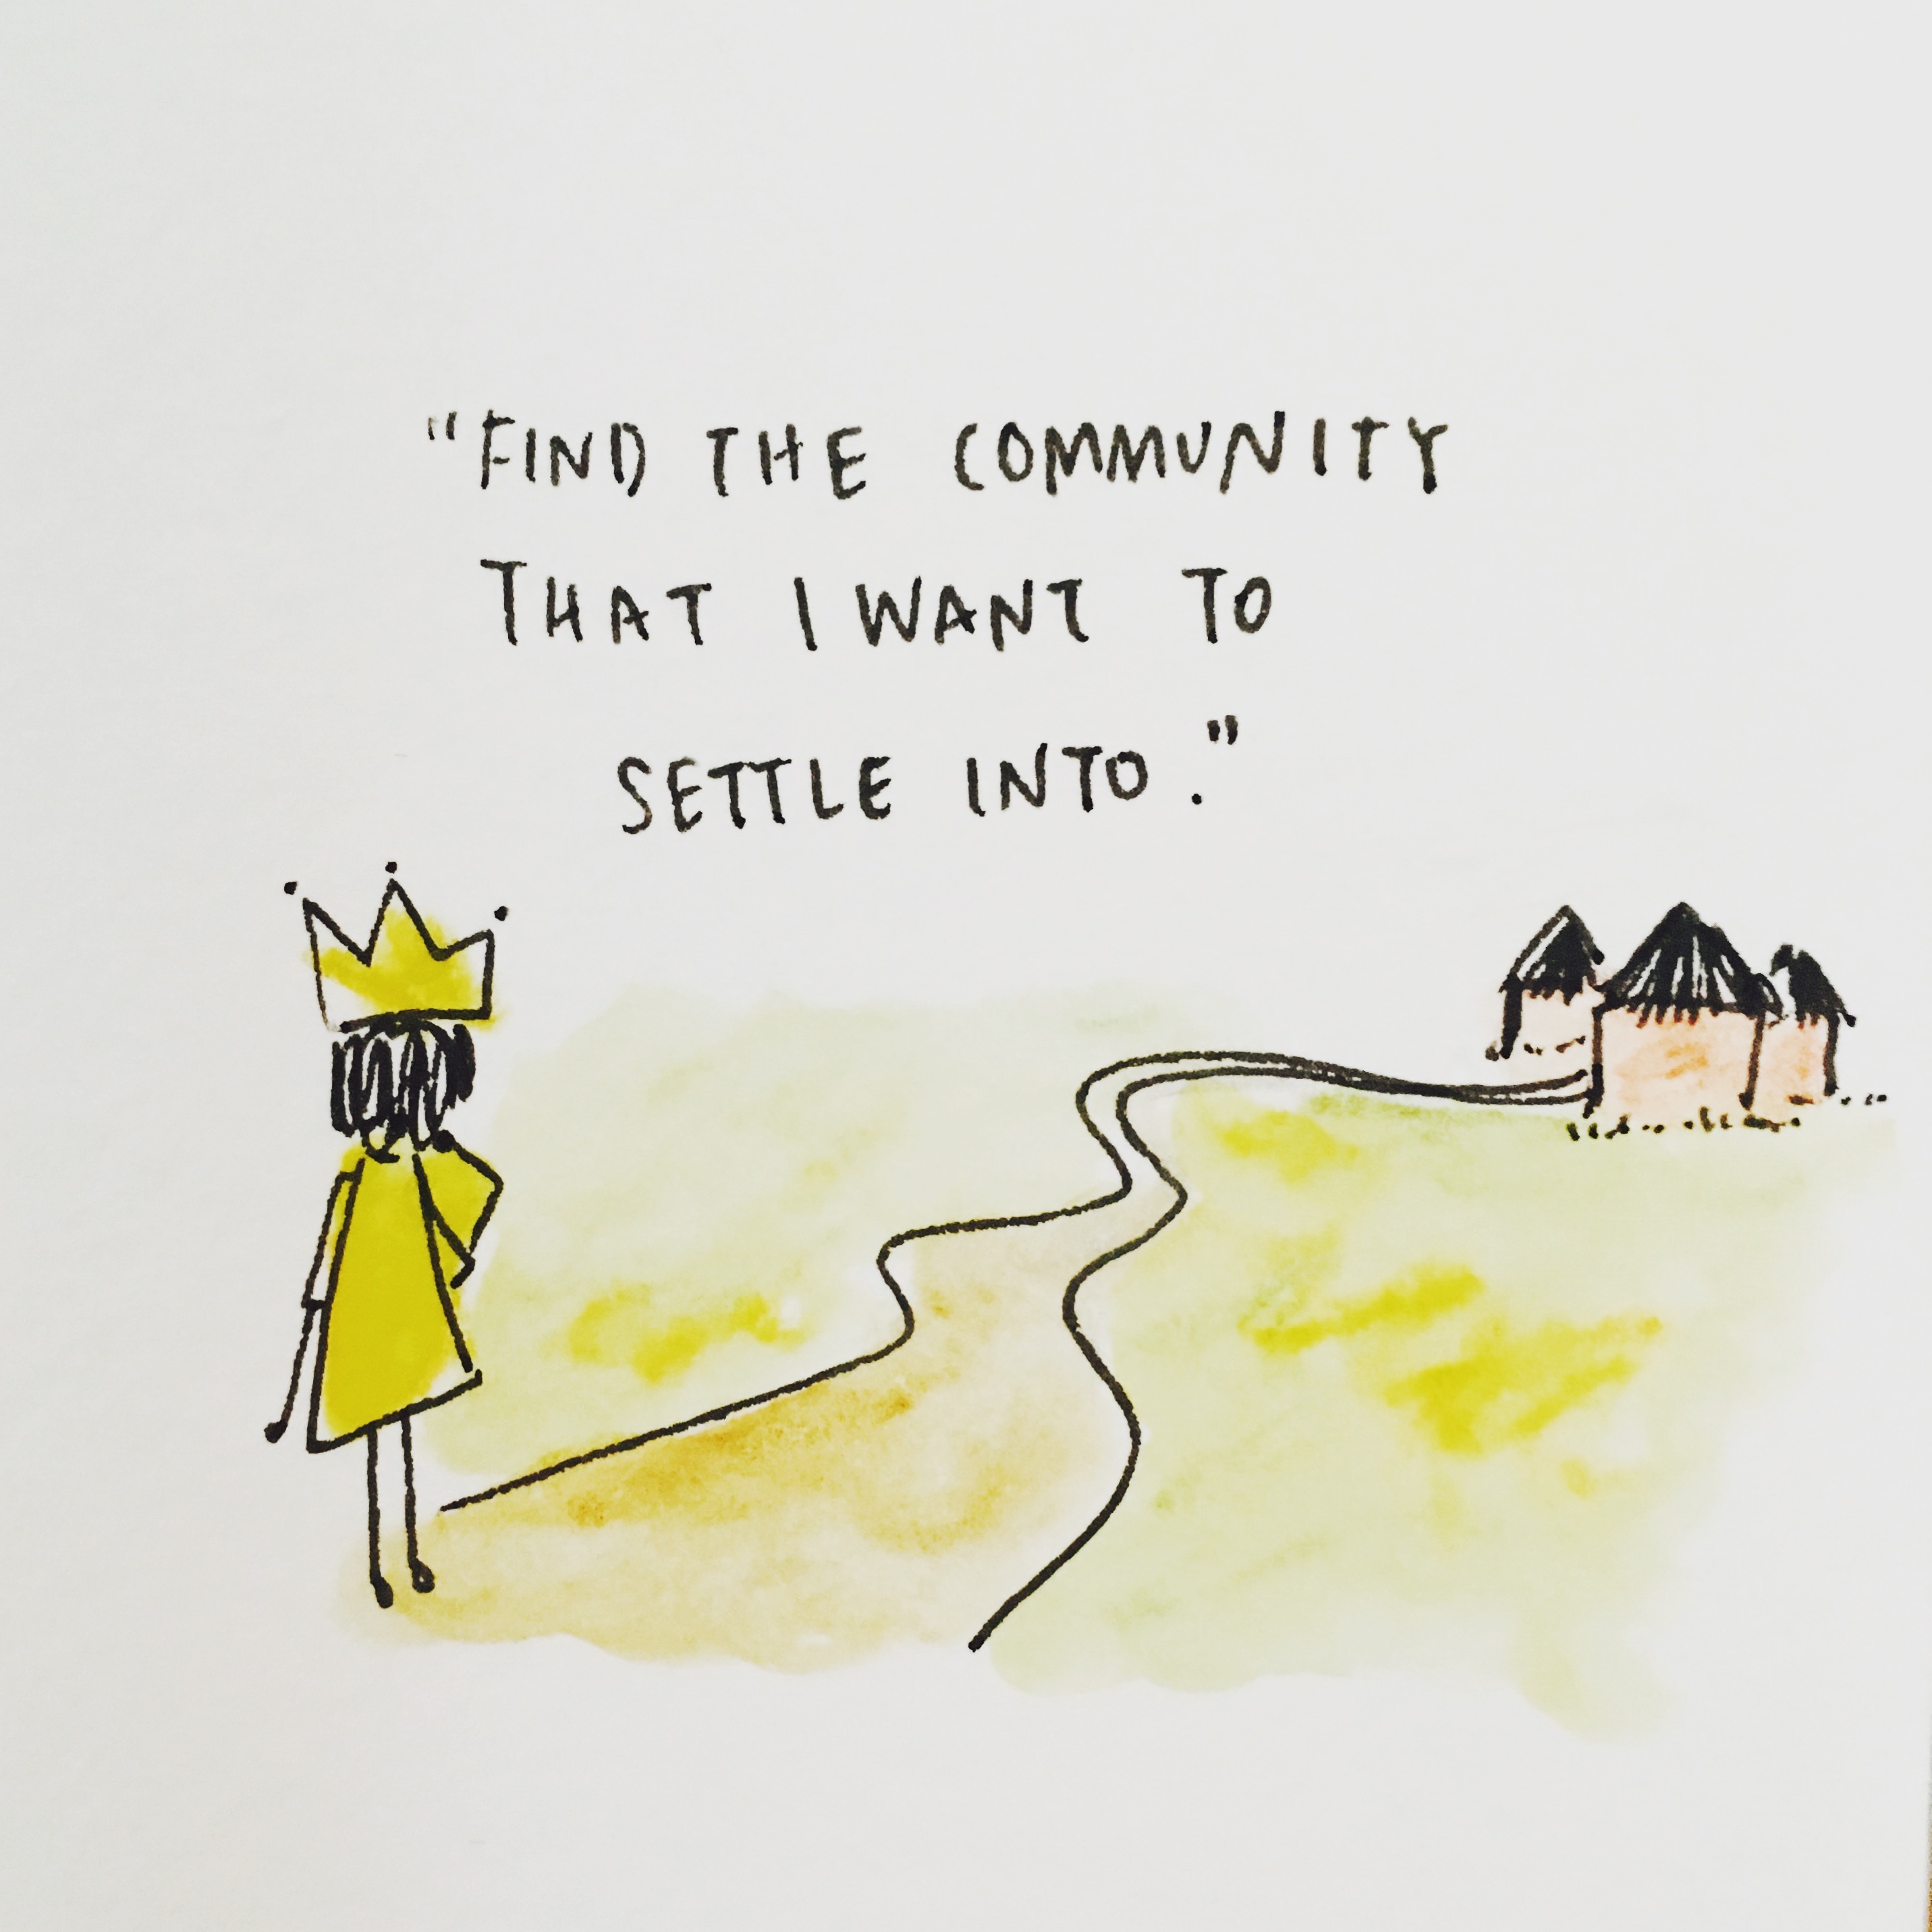 "FIND THE COMMUNITY
THAT I WANT TO
SETTLE INTO."